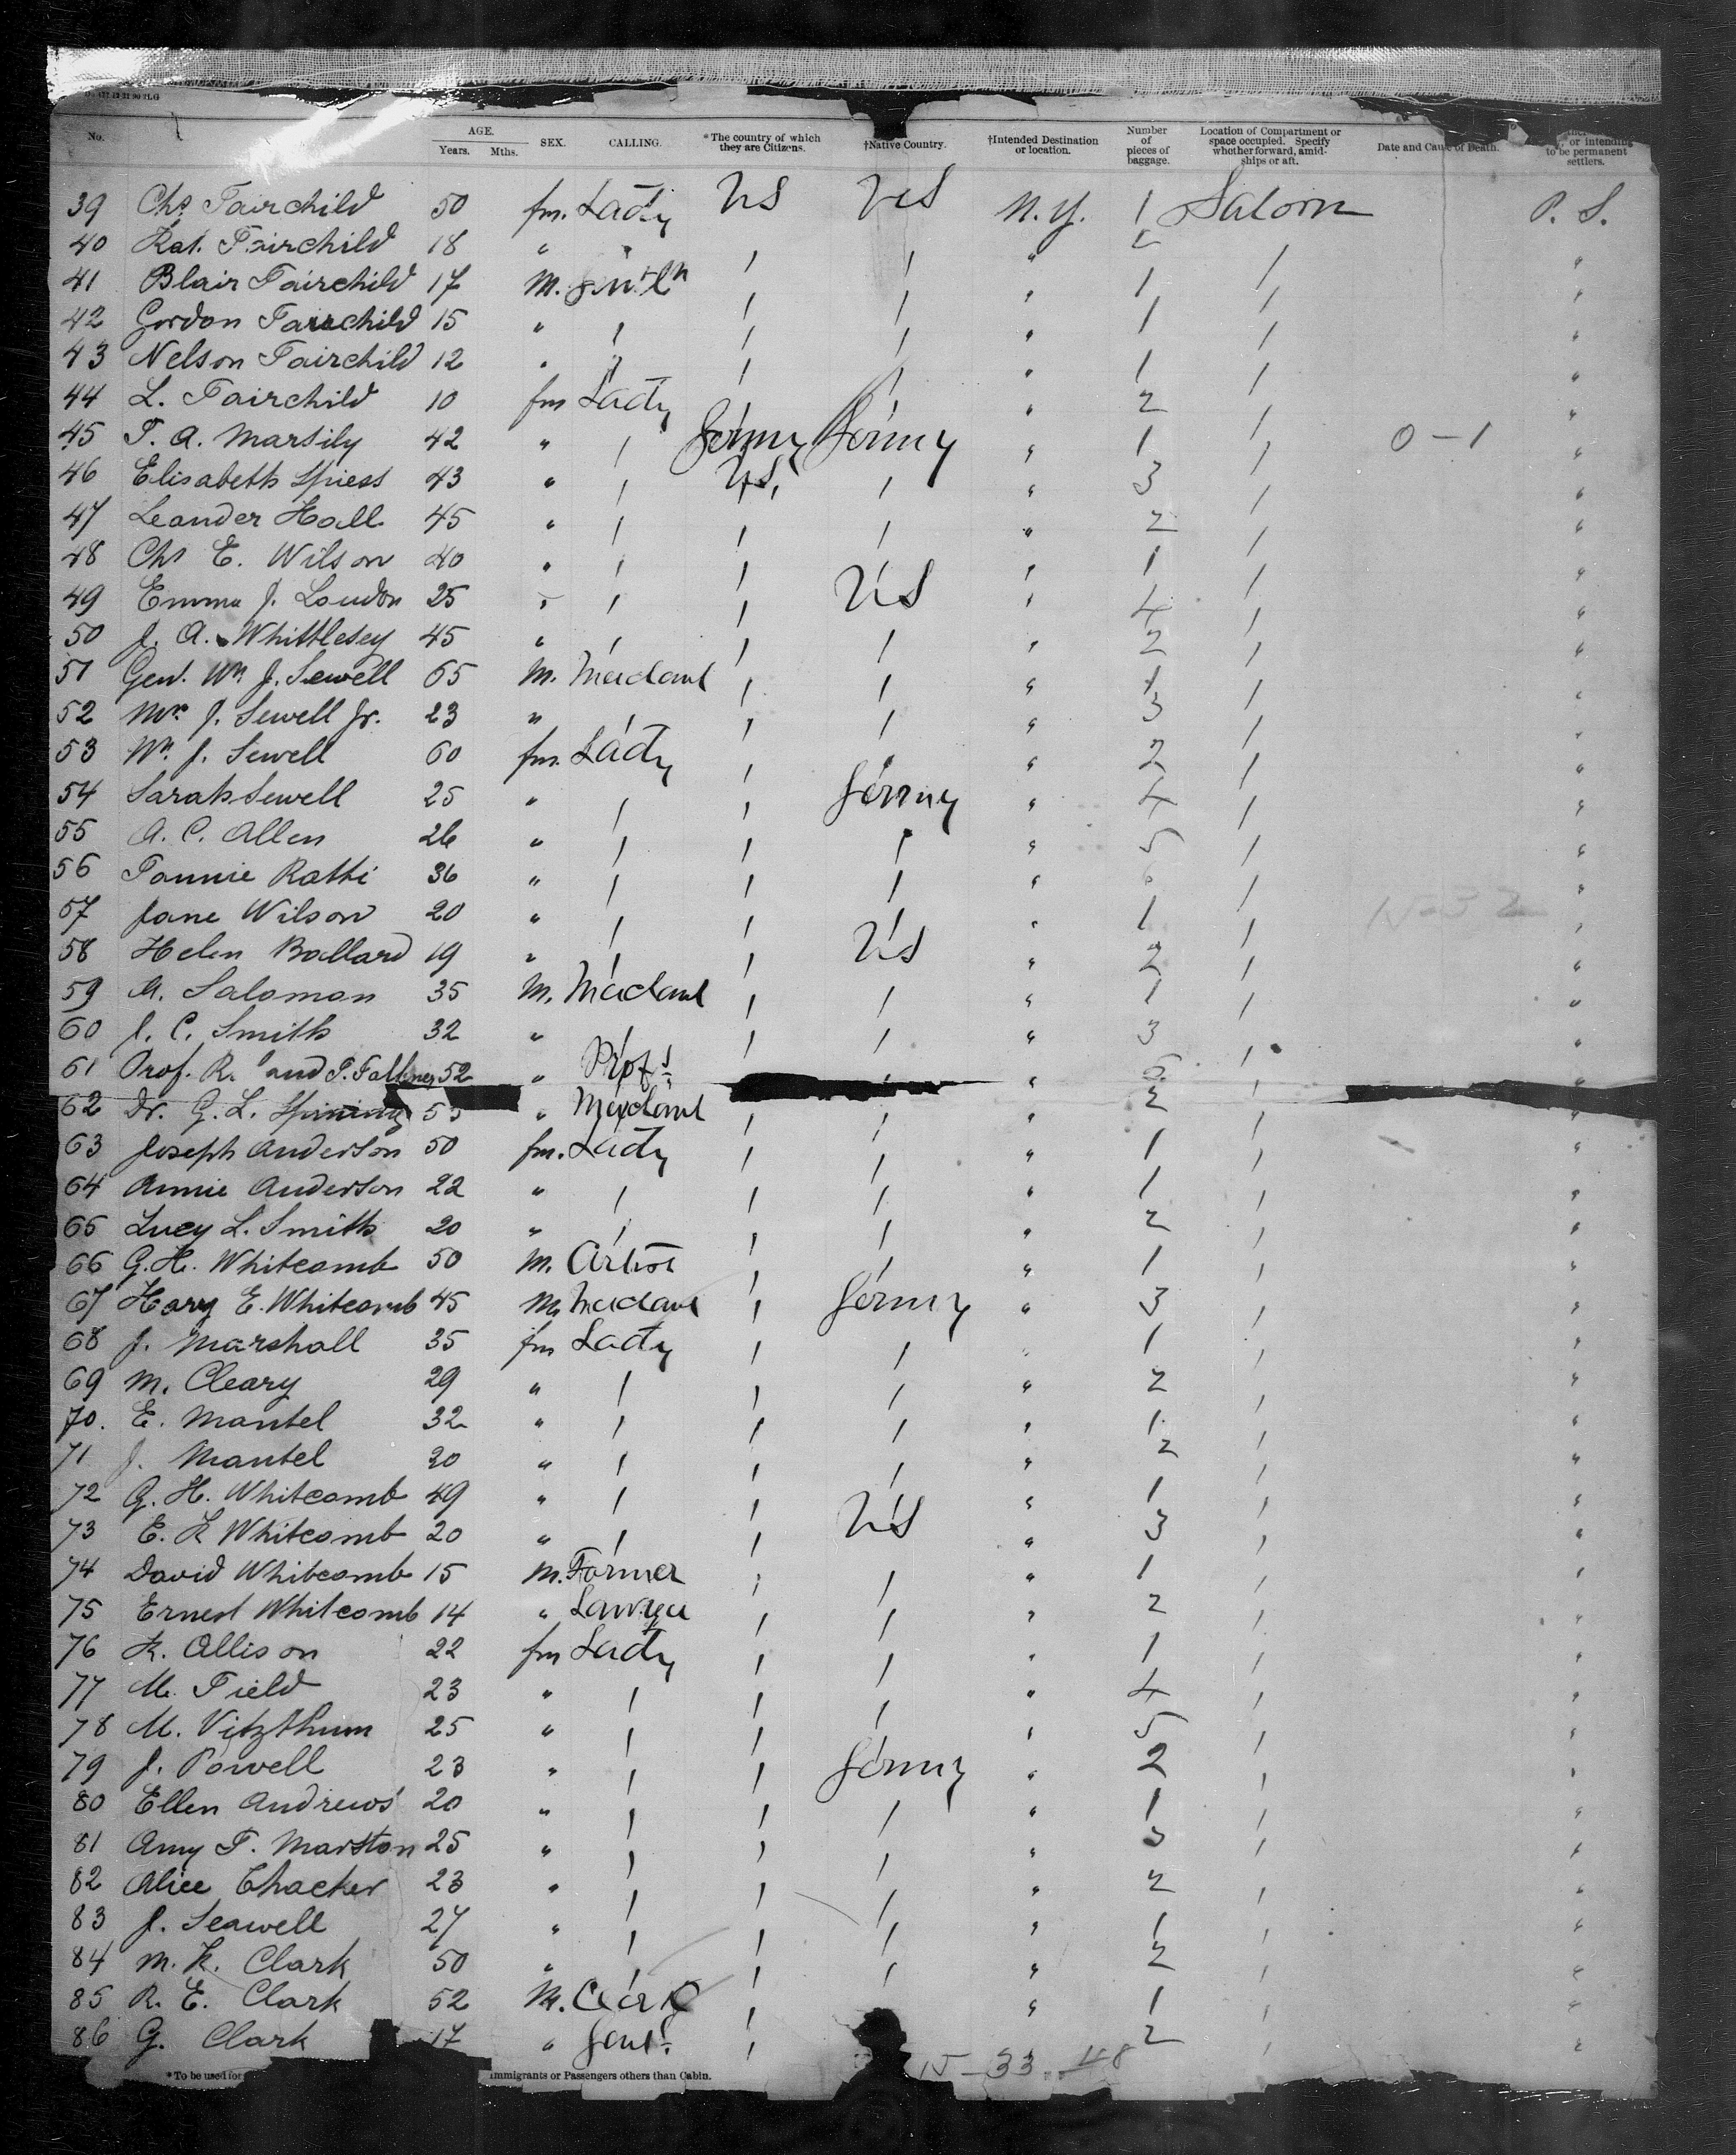 No. AGE. Years. Mths. SEX. CALLING. *The country of which they are Citizens. †Native Country. †Intended Destination or location. Number of pieces of baggage. Location of Compartment or space occupied. Specify whether forward, amidships or aft. Date and Cause of Death. or intending to be permanent settlers.
39 Chs Fairchild 50 fm. Lady US US N.Y. 1 Saloon P. S.
40 Kat. Fairchild 18 "
41 Blair Fairchild 17 M. Gentln / / " 1 /
42 Gordon Fairchild 15 " / / / " 1 /
43 Nelson Fairchild 12 " " / / " 1 /
44 L. Fairchild 10 fm Lady / / " 2 /
45 F. A. Marsily 42 " / Germy Germy " 1 / 0-1 "
46 Elisabeth Spiess 43 " / US / " 3 / "
47 Leander Hall 45 " / / / " 2 / "
48 Chs E. Wilson 40 " / / / " 1 / "
49 Emma J. Loudon 25 " / / US " 4 / "
50 J. A. Whittlesey 45 " / / / " 2 / "
51 Genl. Wm J. Sewell 65 M. / / " /
52 Mr. J. Sewell Jr. 23 " / / / " 3 / "
53 Wm J. Sewell 60 fm. Lady / / " 2 / "
54 Sarah Sewell 25 " / / Germy " 4 / "
55 A. C. Allen 26 " / / / " 5 / "
56 Fannie Ratti 36 " / / / " /
57 Jane Wilson 20 " / / / " 1 /
58 Helen Ballard 19 " / / US " 2 / "
59 A. Salomon 35 M. / / " 1 / "
60 J. C. Smith 32 " / / / " 3 / "
61 Prof. R. and P. Falkner 52 " Prof. "
62 Dr. G. L. Spining " / / 2 /
63 Joseph Anderson 50 fm. Lady / / " 1 / "
64 Annie Anderson 22 " / / / " 1 / "
65 Lucy L. Smith 20 " / / / " 2 / "
66 G. H. Whitcomb 50 M. Artist / / " 1 / "
67 Hary E. Whitcomb 45 M. / Germy " 3 / "
68 J. Marshall 35 fm Lady / / " 1 / "
69 M. Cleary 29 " / / / " 2 / "
70. E. Mantel 32 " / / / " 1 / "
71 J. Mantel 20 " / / / " 2 / "
72 G. H. Whitcomb 49 " / / / " 1 / "
73 E. K Whitcomb 20 " / / US " 3 / "
74 David Whitcomb 15 M. Farmer / / " 1 / "
75 Ernest Whitcomb 14 " Lawyer / / " 2 / "
76 K. Allison 22 fm Lady / / " 1 / "
77 M. Field 23 " / / / " 4 / "
78 M. Vitzthum 25 " / / / " 5 / "
79 J. Powell 23 " / / Germy " 2 / "
80 Ellen Andrews 20 " / / / " 1 / "
81 Amy F. Marston 25 " / / / " 3 / "
82 Alice Thacker 23 " / / / " 2 / "
83 J. Seawell 27 " / / / " 1 / "
84 M. K. Clark 50 " / / / " 2 / "
85 R. E. Clark 52 M. / / " 1 / "
86 G. Clark 17 " Gent. / " 2 / "
15-33
*To be used for Immigrants or Passengers others than Cabin.